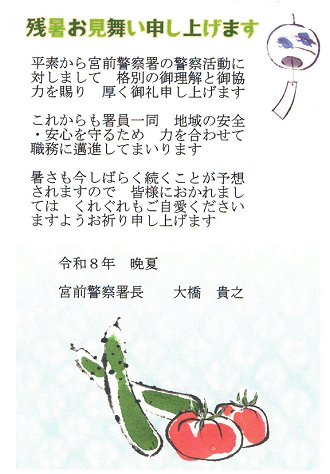 残暑お見舞い申し上げます
平素から宮前警察署の警察活動に
対しまして　格別の御理解と御協
力を賜り　厚く御礼申し上げます
これからも署員一同　地域の安全
・安心を守るため　力を合わせて
職務に邁進してまいります
暑さも今しばらく続くことが予想
されますので　皆様におかれまし
ては　くれぐれもご自愛ください
ますようお祈り申し上げます
令和８年　晩夏
宮前警察署長　　大橋　貴之